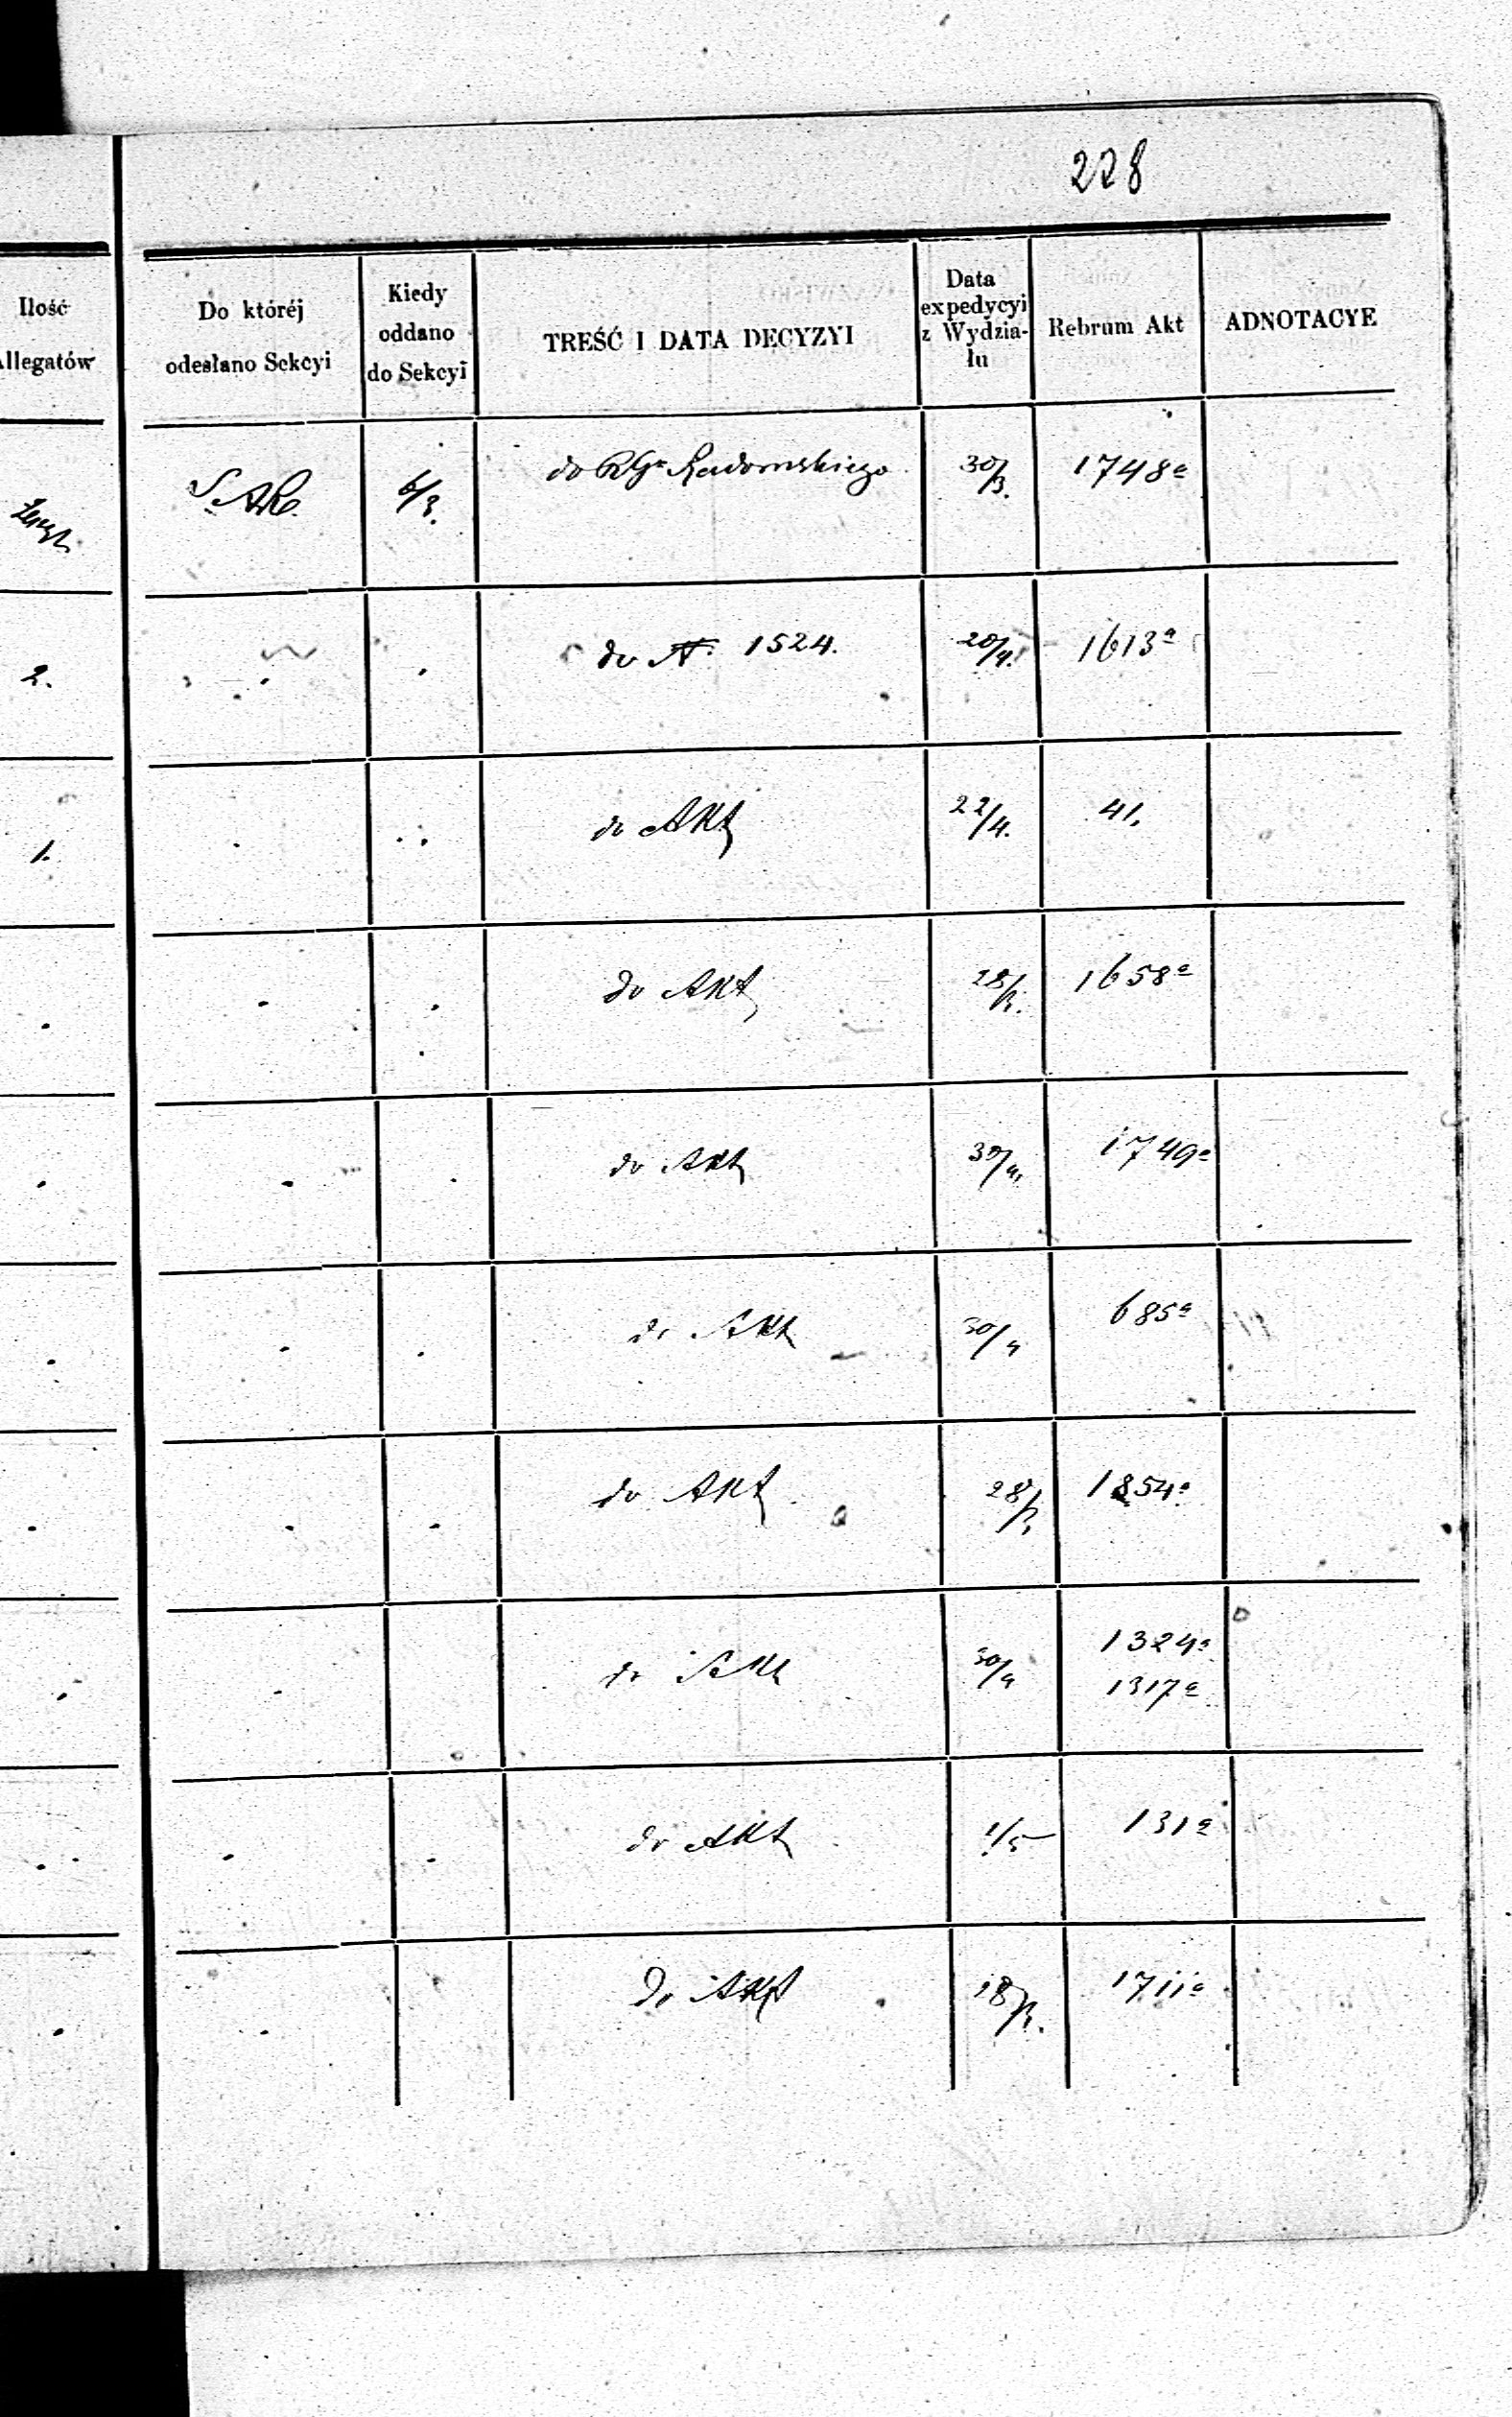 228
Ilość
Allegatów
Do któréj
odesłano Sekcyi
Kiedy
oddano
do Sekcyi
TREŚĆ I DATA DECYZYI
Data
expedycyi
z Wydzia-
łu
Rebrum Akt
ADNOTACYE
6/3.
do RGu Radomskiego
30/3.
1748a
2.
do N. 1524.
20/4.
1613a
1.
do Akt
22/4.
41.
do Akt
28/3.
1658a
do Akt
30/4.
1749a
do Akt
30/4
685a
do Akt
28/3
1854a
do Akt
30/4
1324a
1317a
do Akt
1/5
131a
do Akt
18/3.
1711a